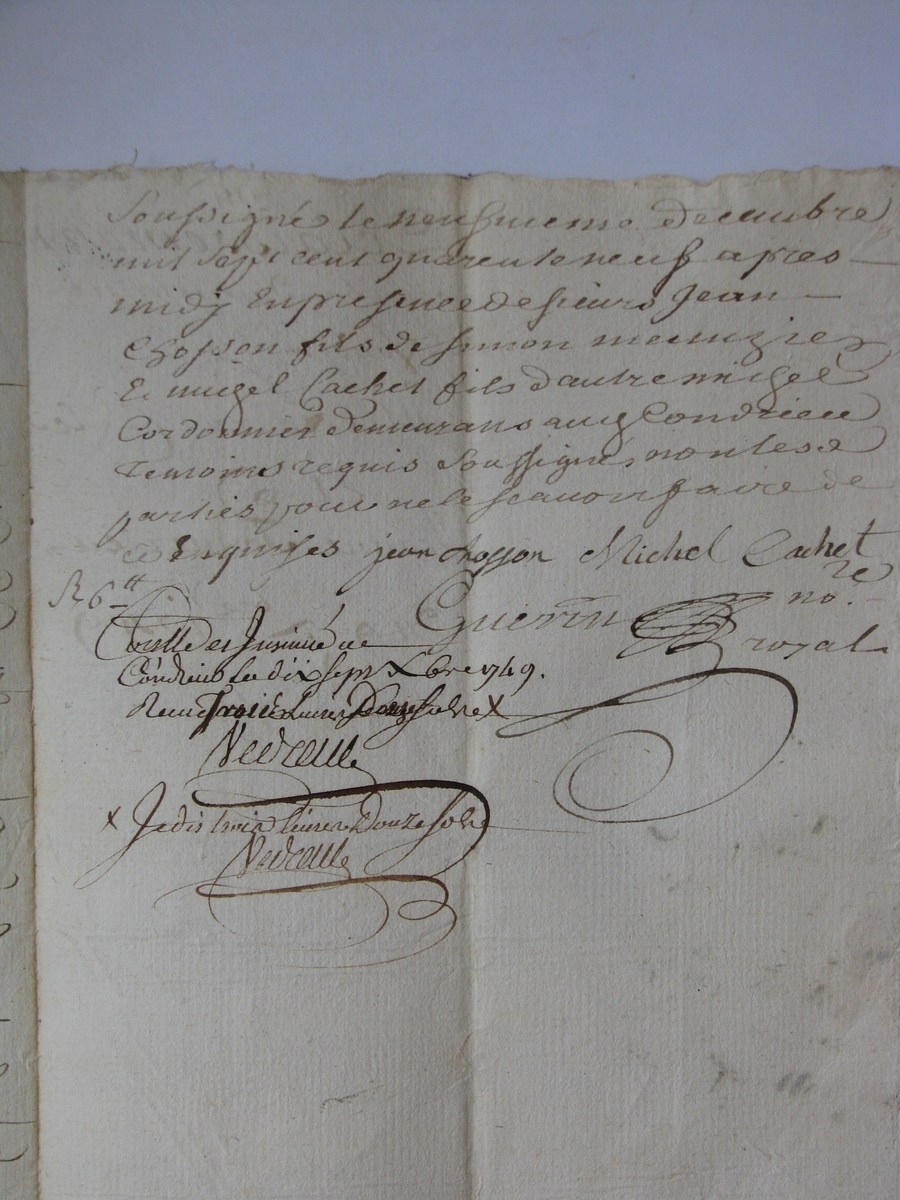 Soussigné le neufvieme decembre
mil sept cent quarente neuf apres
midy En presence de sieurs Jean
Chosson fils de simon menuzier
Et migel Cachet fils d'autre migel
Cordonnier demeurans audt Condrieu
temoins requis soussignés non les
parties pour ne le scavoir faire de
ce Enquises jean chosson Michel Cachet
R 6 tt
Guerin no.re
royal
et Insinué a
Condrieu Le dix sept Xbre 1749.
Receu Trois Livres Douze sols X
X Je dis trois Livres Douze sols